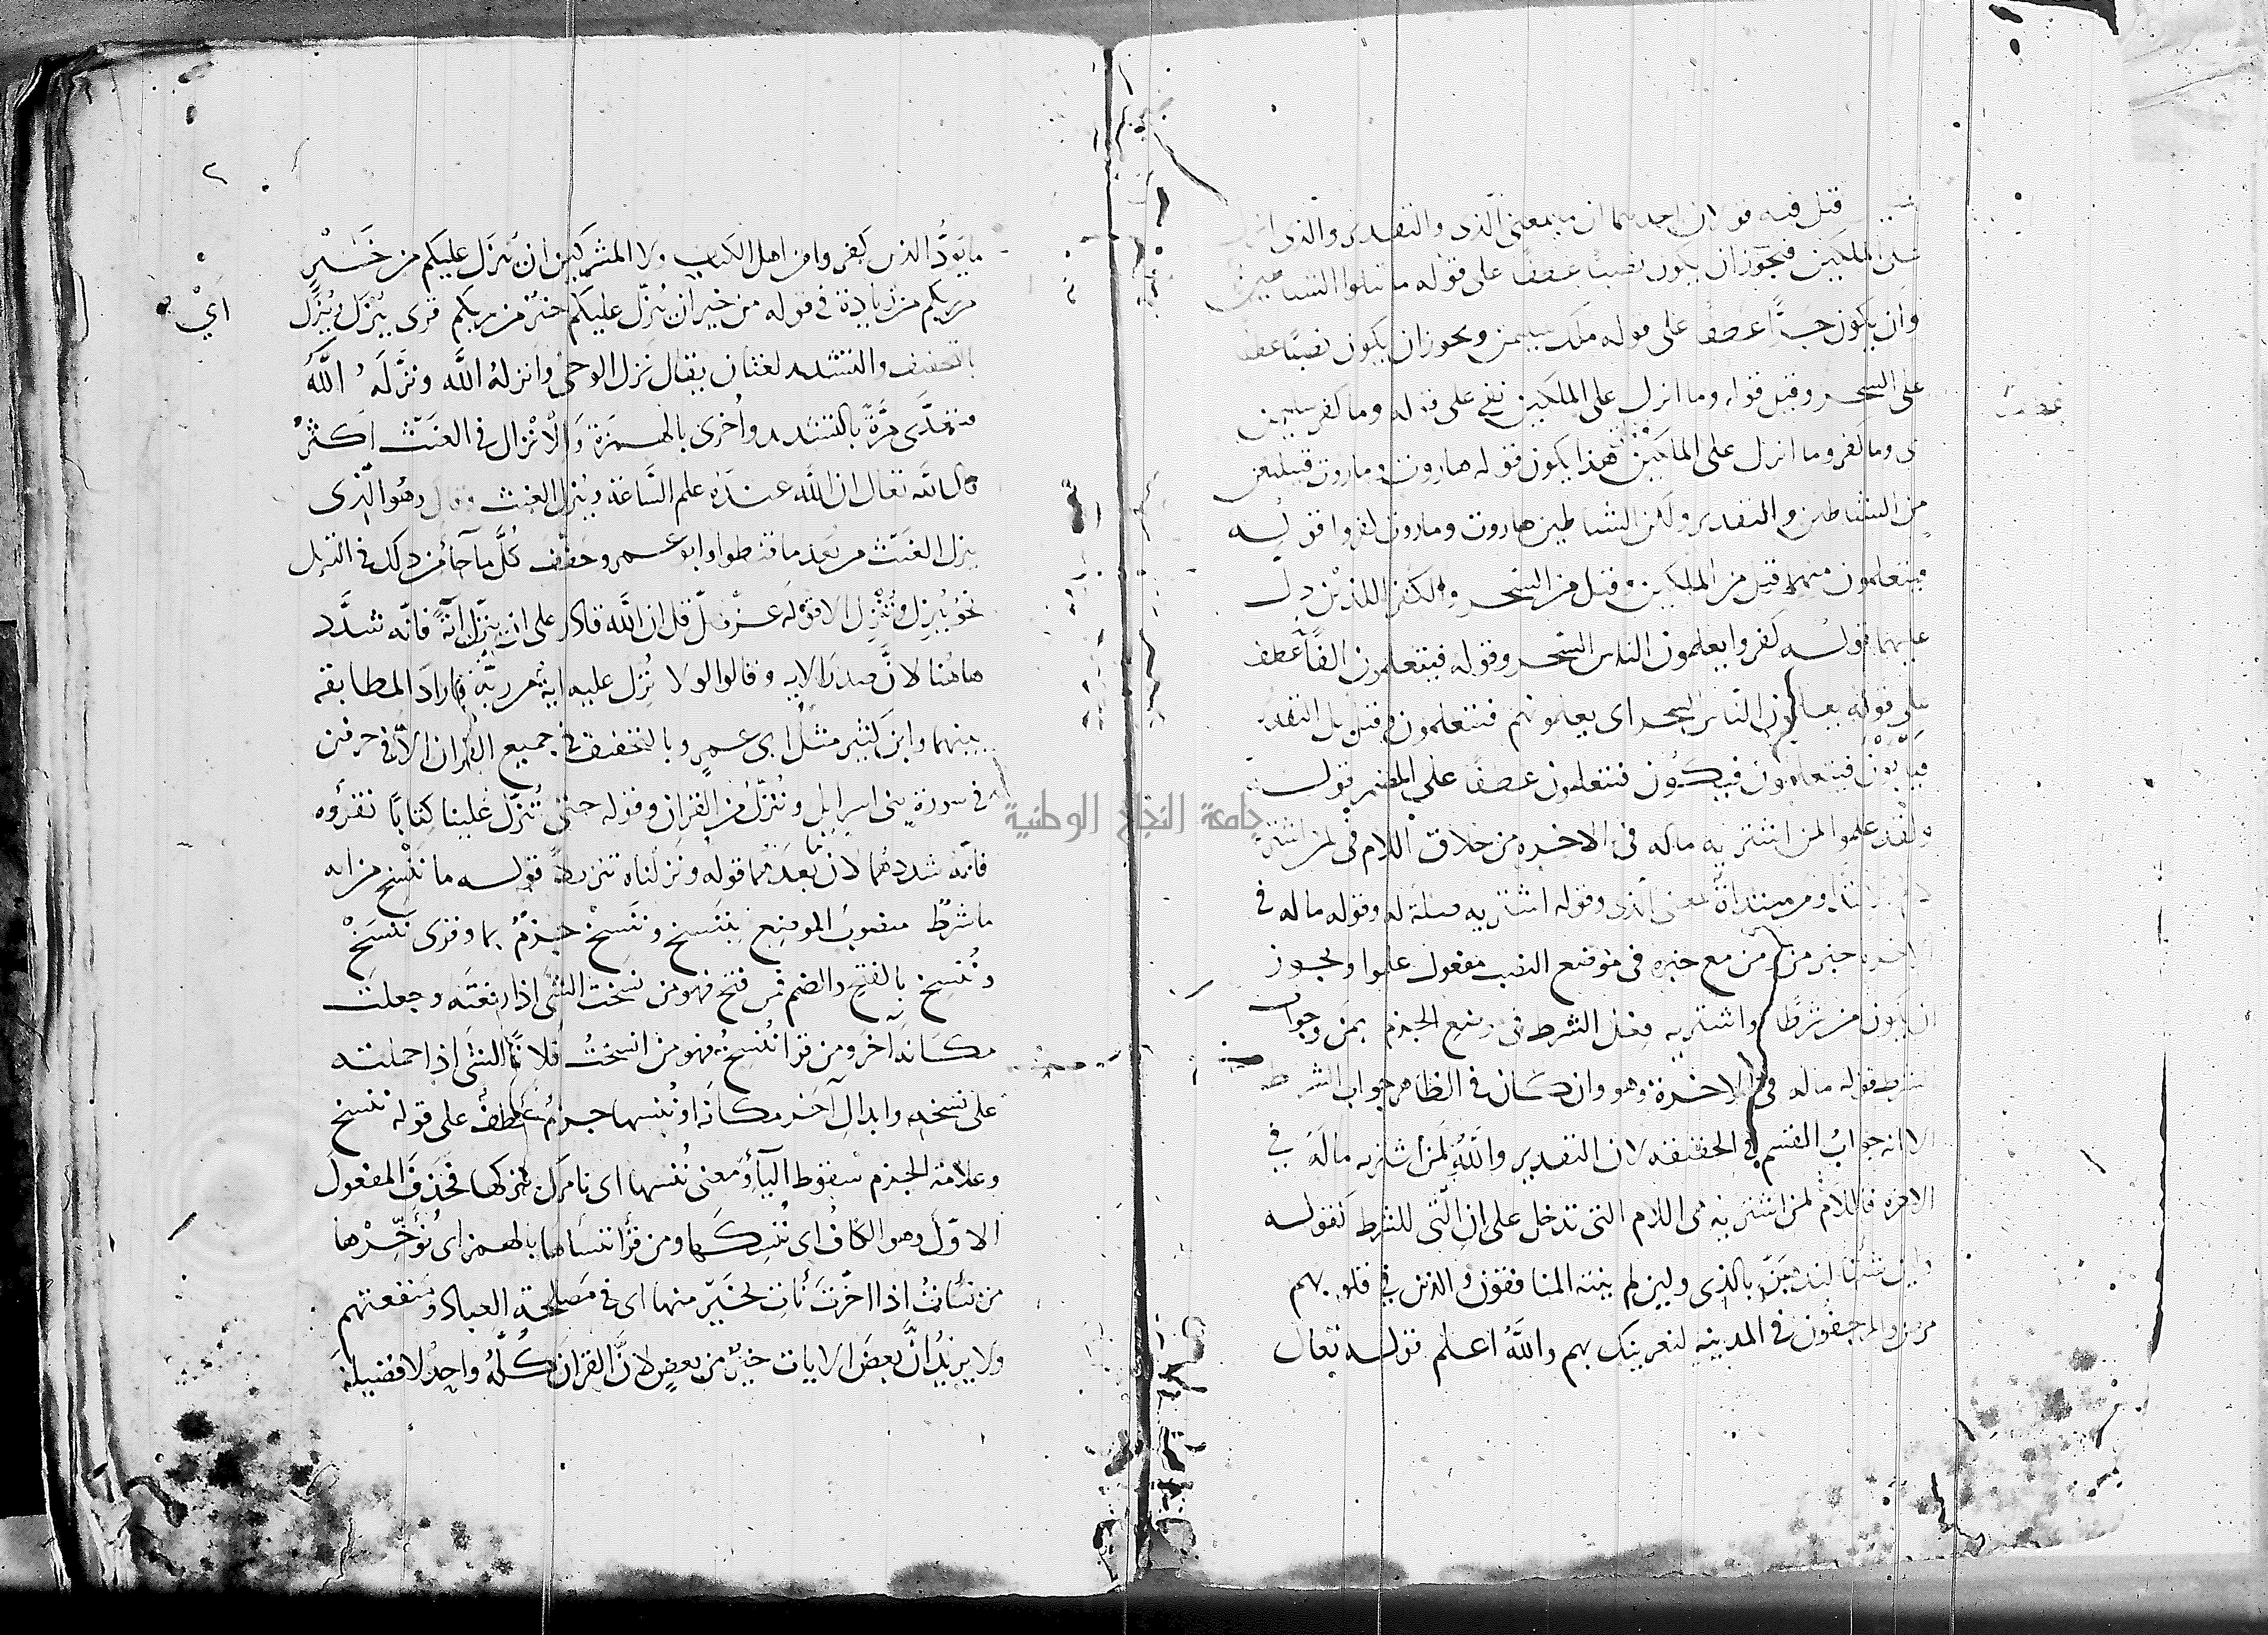 قيل فيه قولان احدهما ان ما بمعنى الذي والتقدير والذي انزل
على الملكين فيجوز ان يكون نصبًا عطفًا على قوله ما تتلوا الشياطين
وان يكون جرًّا عطفا على قوله ملك سليمن ويجوز ان يكون نصبًا عطفا
على السحر وقيل قوله وما انزل على الملكين نفي على قوله وما كفر سليمن
اى وما كفر وما انزل على الملكين هذا يكون قوله هاروت وماروت قبيلين
من الشياطين والتقدير ولكن الشياطين هاروت وماروت كفروا قوله
فيتعلمون منهما قيل من الملكين وقيل من السحر والكفر اللذين دل
عليهما قوله كفروا يعلمون الناس السحر وقوله فيتعلمون الفا عطف
على قوله يعلمون الناس السحر اى يعلمونهم فيتعلمون وقيل بل التقدير
فيابون فيتعلمون فيكون فيتعلمون عطفا على المضمر قوله
ولقد علموا لمن اشتريه ماله فى الاخرة من خلاق اللام فى لمن اشتريه
لام الابتدا ومن مبتداة بمعنى الذي وقوله اشتريه صلة له وقوله ماله في
الاخرة خبر من ومن مع خبره فى موضع النصب مفعول علموا ويجوز
ان يكون من شرطًا واشتريه فعل الشرط فى موضع الجزم بمن وجواب
الشرط قوله ماله فى الاخرة وهو وان كان فى الظاهر جواب الشرط
الا انه جواب القسم في الحقيقة لان التقدير والله لمن اشتريه ماله في
الاخرة فاللام لمن اشتريه هى اللام التى تدخل على ان التى للشرط كقوله
ولين شئنا لنذهبن بالذى ولين لم ينته المنافقون والذين في قلوبهم
مرض والمرجفون فى المدينة لنغرينك بهم والله اعلم قوله تعالى
٢
ما يودُّ الذين كفروا من اهل الكتاب ولا المشركين ان ينزل عليكم من خيرٍ
من ربكم من زيادة فى قوله من خير اى ان ينزل عليكم خير من ربكم قرى يُنْزَل ويُنَزَّل
اىْ
بالتخفيف والتشديد لغتان يقال نزل الوحى وانزله الله ونزّله الله
فتعدّى مرَّةً بالتشديد واُخرى بالهمزة والانزال فى الغيث اكثر
قال الله تعالى ان الله عنده علم الساعة وينزل الغيث وقال وهو الّذى
ينزل الغيث من بعد ما قنطوا وابو عمرو خفّف كلَّ ما جاء من ذلك فى التنزيل
نحو يُنزِل ونُنْزِل الا قوله عز وجل قل ان الله قادر على ان ينزّل ايةً فانّه شدَّد
هاهنا لانَّ صدر الاية وقالوا لولا نُزِّل عليه اية من ربّه فاراد المطابقة
بينهما وابن كثير مثل ابى عمرٍو وبالتخفيف فى جميع القران الّا فى حرفين
فى سورة بنى اسرايل وننزّل من القران وقوله حتى تُنزّل علينا كتابًا نقرؤه
فانّه شددهما لان بعدهما قوله ونزلناه تنزيلًا قوله ما ننسخ من اية
ما شرط منصوب الموضع بننسخ وننسخْ جزمٌ بما وقرى ننسَخْ
ونُنسِخ بالفتح والضم فمن فتح فهو من نسخت الشئ اذا رفعته وجعلت
مكانه آخر ومن قرا نُنسِخ فهو من انسختُ فلانًا الشئ اذا حملته
على نسخه وابدال آخر مكانه او نُنسها جزمٌ عطفٌ على قوله ننسخ
وعلامة الجزم سقوط اليآ ومعنى نُنسها اى نامركَ بتركها فحذف المفعول
الاوّل وهو الكاف اى نُنسِكَها ومن قرا ننسأها بالهمز اى نُؤخِّرْها
من نسأتُ اذا اخّرت نأت بخير منها اى فى مصلحة العباد ومنفعتهم
ولا يريدُ انَّ بعض الايات خيرٌ من بعض لانَّ القران كلّه واحدٌ لا فضيلة
جامعة النجاح الوطنية